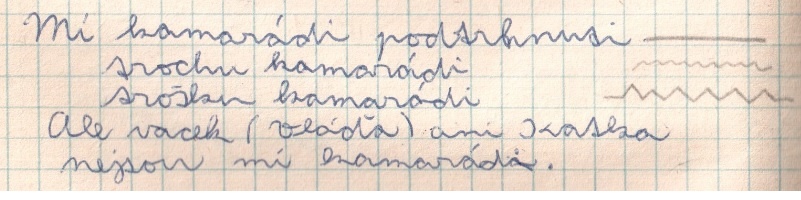 Mí kamarádi podtrhnuti
trochu kamarádi
trošku kamarádi
Ale vacek (vláďa) ani Katka
nejsou mí kamarádi.